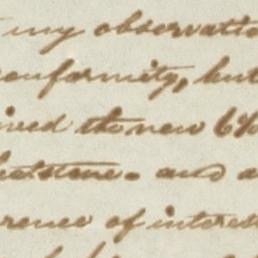 my observatio
conformity, but
ived the new 6%
and a
rence of interest